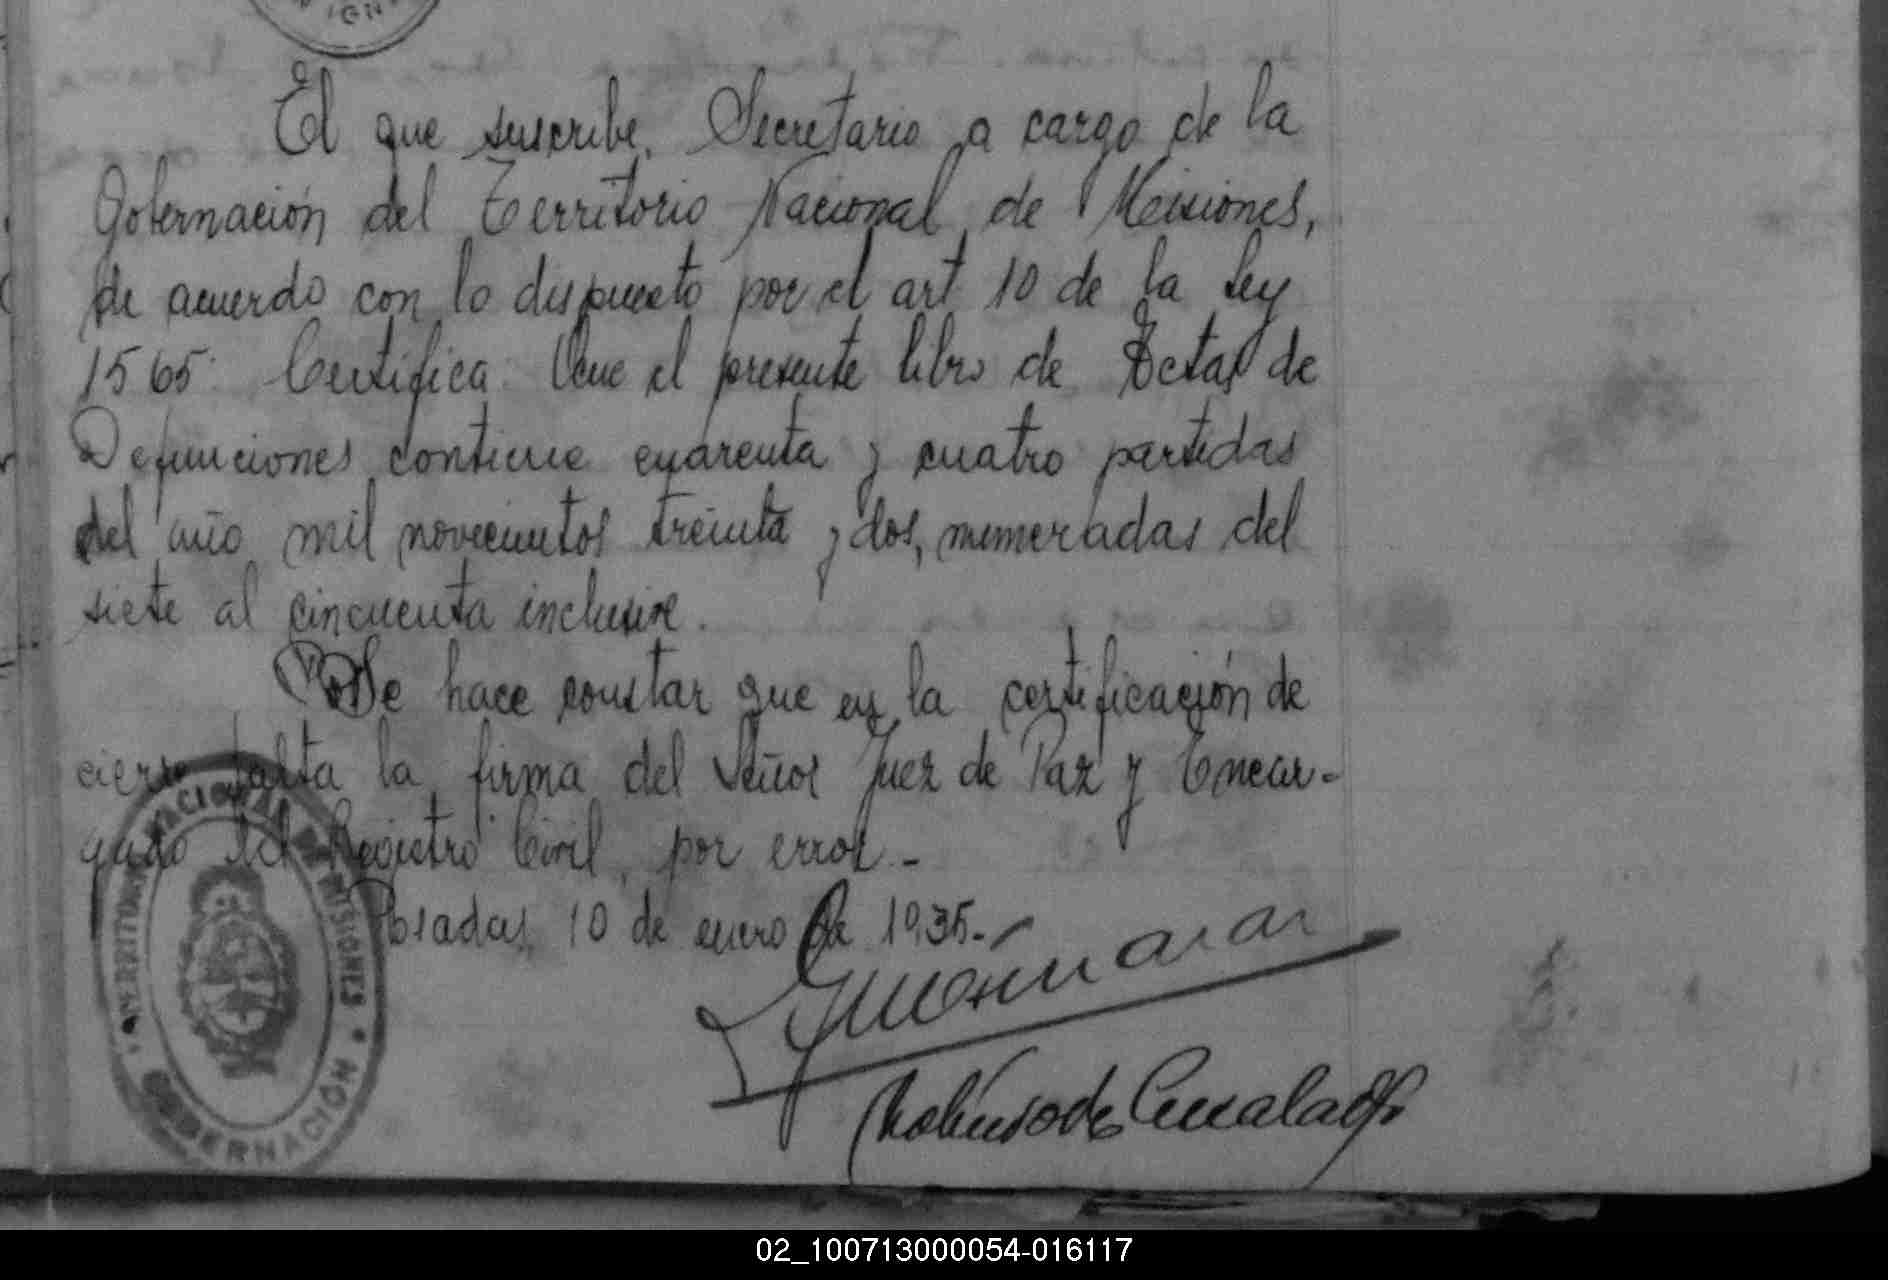 El que suscribe, Secretario a cargo de la
Gobernación del Territorio Nacional de Misiones,
de acuerdo con lo dispuesto por el art. 10 de la Ley
1565: Certifica: Que el presente libro de Actas de
Defunciones contiene cuarenta y cuatro partidas
del año mil novecientos treinta y dos, numeradas del
siete al cincuenta inclusive.
Se hace constar que en la certificación de
cierre falta la firma del Señor Juez de Paz y Encar-
gado del Registro Civil, por error.-
Posadas, 10 de enero de 1935.-
TERRITORIO NACIONAL DE MISIONES
GOBERNACIÓN
02_100713000054-016117